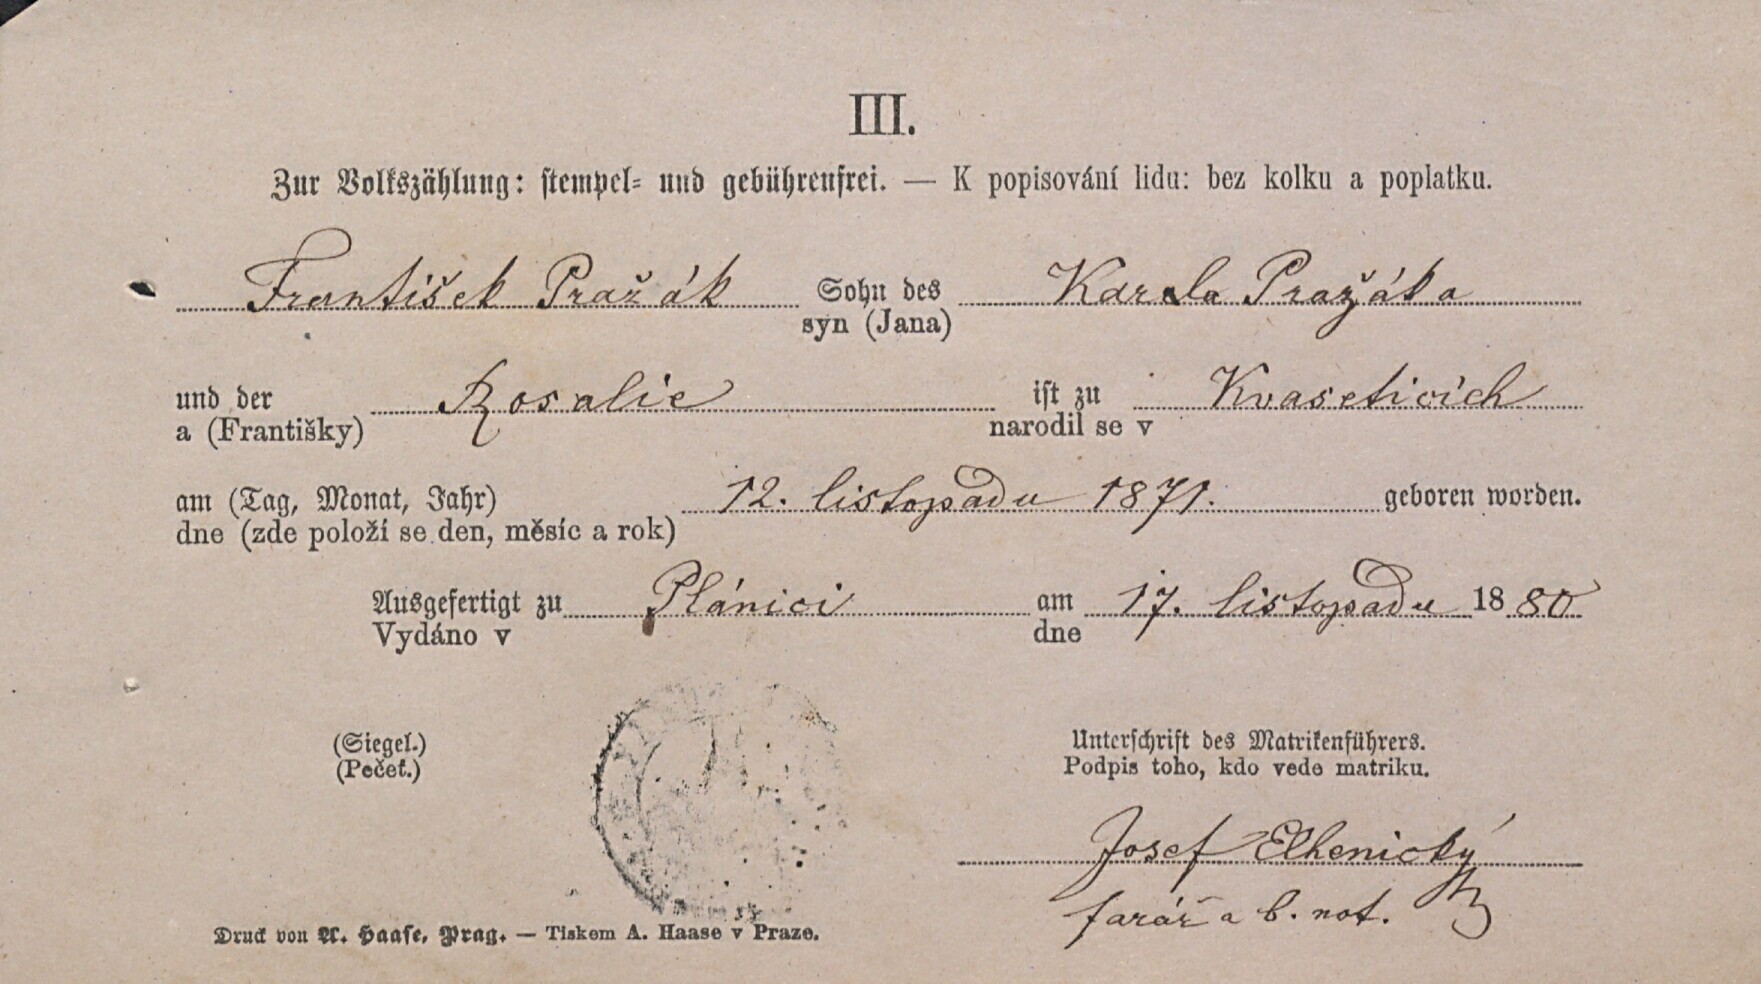 III.
Zur Volkszählung: stempel- und gebührenfrei. — K popisování lidu: bez kolku a poplatku.
František Pražák Sohn des Karla Pražáka
syn (Jana)
und der Rosalie ist zu Kvasetivích
a (Františky) narodil se v
am (Tag, Monat, Jahr) 12. listopadu 1871. geboren worden.
dne (zde položí se den, měsíc a rok)
Ausgefertigt zu Plánici am 17. listopadu 1880
Vydáno v dne
(Siegel.) Unterschrift des Matrikenführers.
(Pečeť.) Podpis toho, kdo vede matriku.
Josef Elhenický
farář a b. not.
Druck von A. Haase, Prag. — Tiskem A. Haase v Praze.